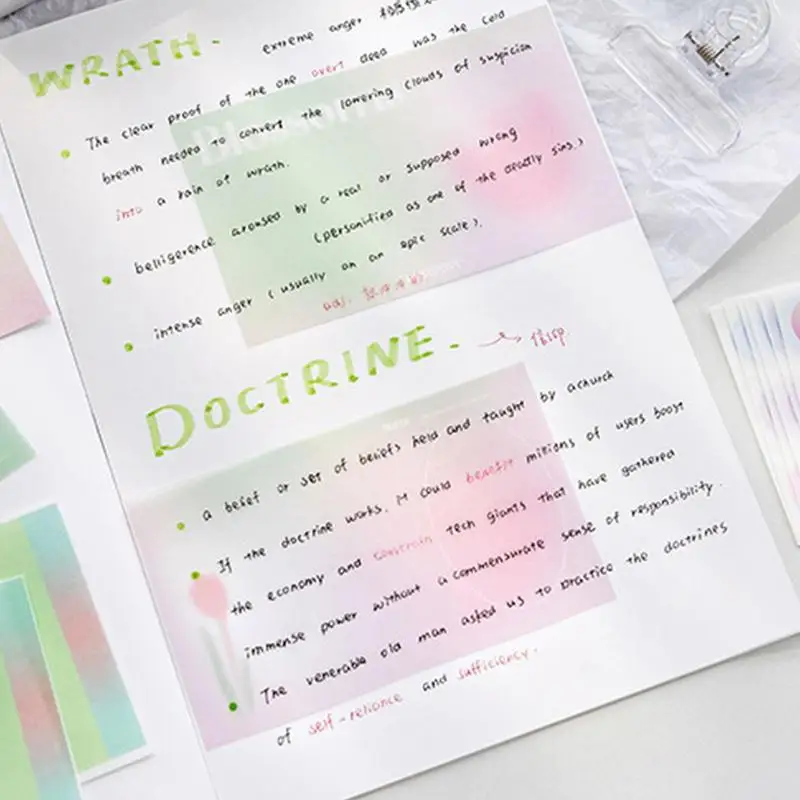 WRATH.
extreme anger
The clear proof of the one overt deed was the cold
breath needed to convert the lowering clouds of suspicion
into a rain of wrath.
belligerence aroused by a real or supposed wrong
(personified as one of the deadly sins.)
intense anger (usually on an epic scale).
Blossom
adj.
DOCTRINE.
a belief or set of beliefs held and taught by a church
If the doctrine works, it could benefit millions of users boost
the economy and constrain tech giants that have gathered
immense power without a commensurate sense of responsibility.
The venerable old man asked us to practice the doctrines
of self-reliance and sufficiency.